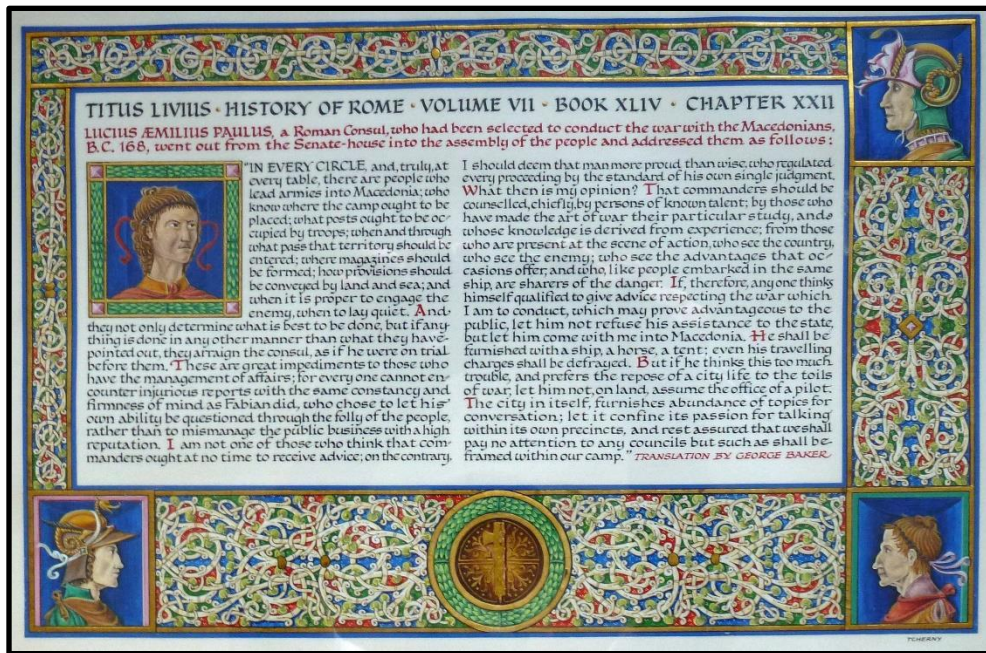 TITUS LIVIUS · HISTORY OF ROME · VOLUME VII · BOOK XLIV · CHAPTER XXII
LUCIUS ÆMILIUS PAULUS, a Roman Consul, who had been selected to conduct the war with the Macedonians,
B.C. 168, went out from the Senate-house into the assembly of the people and addressed them as follows:
"IN EVERY CIRCLE, and, truly, at
every table, there are people who
lead armies into Macedonia; who
know where the camp ought to be
placed; what posts ought to be oc-
cupied by troops; when and through
what pass that territory should be
entered; where magazines should
be formed; how provisions should
be conveyed by land and sea; and
when it is proper to engage the
enemy, when to lay quiet. And
they not only determine what is best to be done, but if any
thing is done in any other manner than what they have
pointed out, they arraign the consul, as if he were on trial
before them. These are great impediments to those who
have the management of affairs; for every one cannot en-
counter injurious reports with the same constancy and
firmness of mind as Fabian did, who chose to let his
own ability be questioned through the folly of the people,
rather than to mismanage the public business with a high
reputation. I am not one of those who think that com-
manders ought at no time to receive advice; on the contrary,
I should deem that man more proud than wise, who regulated
every proceeding by the standard of his own single judgment.
What then is my opinion? That commanders should be
counselled, chiefly, by persons of known talent; by those who
have made the art of war their particular study, and
whose knowledge is derived from experience; from those
who are present at the scene of action, who see the country,
who see the enemy; who see the advantages that oc-
casions offer, and who, like people embarked in the same
ship, are sharers of the danger. If, therefore, any one thinks
himself qualified to give advice respecting the war which
I am to conduct, which may prove advantageous to the
public, let him not refuse his assistance to the state,
but let him come with me into Macedonia. He shall be
furnished with a ship, a horse, a tent; even his travelling
charges shall be defrayed. But if he thinks this too much
trouble, and prefers the repose of a city life to the toils
of war, let him not, on land, assume the office of a pilot.
The city in itself, furnishes abundance of topics for
conversation; let it confine its passion for talking
within its own precincts, and rest assured that we shall
pay no attention to any councils but such as shall be
framed within our camp." TRANSLATION BY GEORGE BAKER
TCHERNY